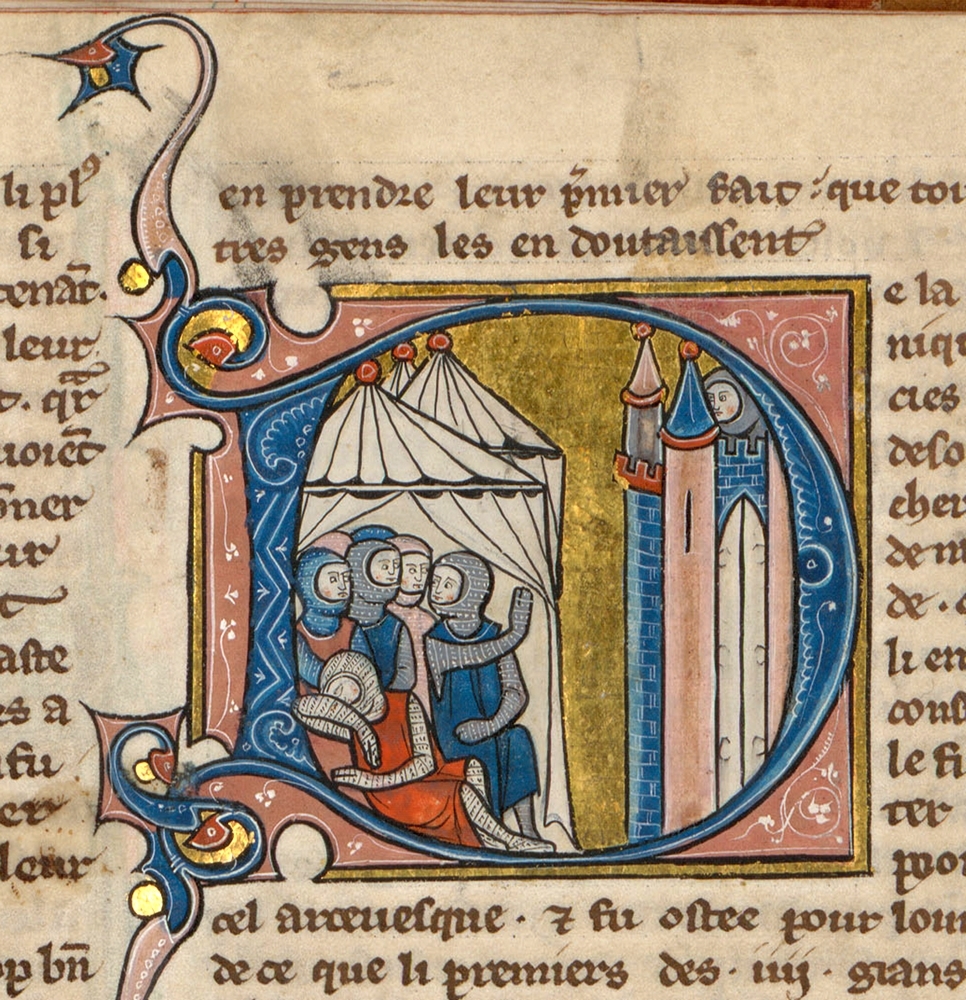 li plꝰ
si
tenāt.
leur
uoiēt
ur
aste
es a
fu
er
leur
bn̄
en prendre leur p̄mier bait : que tou
tres gens les en doutaissent
D
e la
niqu
cies
deso
cher
de nu
de .
li en
cons
le fi
ter
cel arceuesque . ⁊ fu ostee pour lou
de ce que li premiers des . iiij . grans